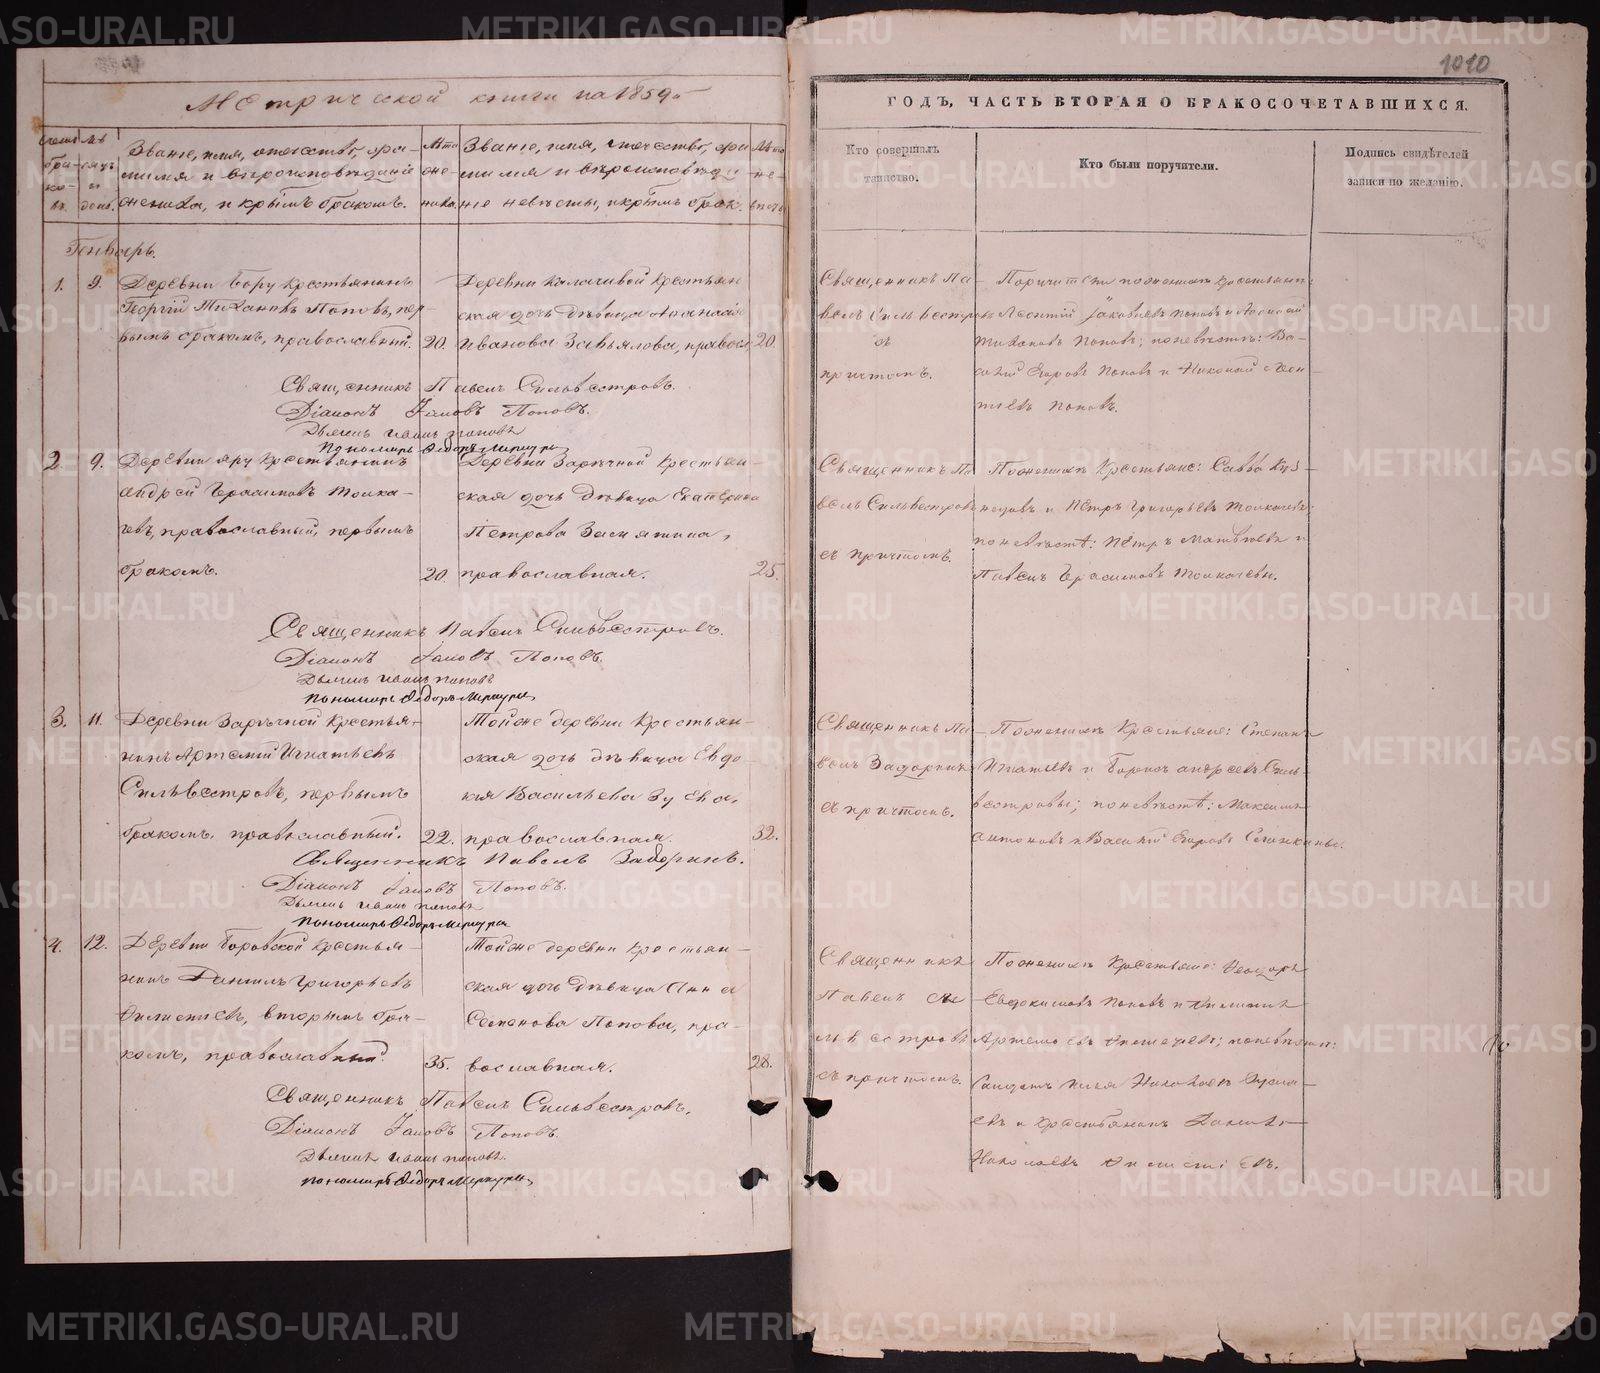 Метрической книги на 1859й
ГОДЪ, ЧАСТЬ ВТОРАЯ О БРАКОСОЧЕТАВШИХСЯ.
1010
Званіе, имя, отечество, фа-
милія и вѣроисповѣданіе
жениха, и крымъ бракомъ.
Званіе, имя, отечество, фа
милія и вѣроисповѣда
ніе невѣсты, и крымъ брак.
Кто совершалъ
таинство.
Кто были поручители.
Подпись свидѣтелей
записи по желанію.
Генварь.
1. 9. Деревни Бору крестьянинъ
Георгій Тихановъ Поповъ, пер-
вымъ бракомъ, православный. 20.
Деревни Калачивой крестьян
ская дочь дѣвица Афанасія
Иванова Завьялова, правосл 20.
Священникъ Па-
велъ Сильвестровъ
съ
причтомъ.
Поручители по женихѣ крестьяне:
Леонтій Яковлевъ Поповъ и
Тихановъ Поповъ; по невѣстѣ: Ва-
силій Егоровъ Поповъ и Николай
Поповъ.
Священникъ Павелъ Сильвестровъ.
Діаконъ Іаковъ Поповъ.
Дьячекъ Иванъ Поповъ
Пономарь Федоръ Меркурьи
2. 9. Деревни Яру крестьянинъ
Андрей Герасимовъ Толка-
чевъ, православный, первымъ
бракомъ. 20.
Деревни Зарѣчной крестьян-
ская дочь дѣвица Екатерина
Петрова Засыпкина,
православная. 25.
Священникъ Па
велъ Сильвестровъ
съ причтомъ.
По женихѣ крестьяне: Савва Куз-
нецовъ и Петръ Григорьевъ Толкачевъ;
по невѣстѣ: Петръ Матвѣевъ и
Павелъ Герасимовъ Толкачевы.
Священникъ Павелъ Сильвестровъ.
Діаконъ Іаковъ Поповъ.
Дьячекъ Иванъ Поповъ
Пономарь Федоръ Меркурьи
3. 11. Деревни Зарѣчной крестья-
нинъ Артемій Игнатьевъ
Сильвестровъ, первымъ
бракомъ, православный. 22.
Той же деревни крестьян-
ская дочь дѣвица Евдо-
кія Васильева Зуева,
православная. 32.
Священникъ Па-
велъ Задоринъ
съ причтомъ.
По женихѣ крестьяне: Степанъ
Игнатьевъ и Борисъ Андреевъ Силь-
вестровы; по невѣстѣ: Максимъ
Антоновъ и Василій Егоровъ
Священникъ Павелъ Задоринъ.
Діаконъ Іаковъ Поповъ.
Дьячекъ Иванъ Поповъ
Пономарь Федоръ Меркурьи
4. 12. Деревни Боровской крестья-
нинъ Даниилъ Григорьевъ
Филистеевъ, вторымъ бра-
комъ, православный. 35.
Той же деревни крестьян-
ская дочь дѣвица Анна
Семенова Попова, пра-
вославная. 28.
Священникъ
Павелъ Си
львестровъ
съ причтомъ.
По женихѣ крестьяне: Феодоръ
Евдокимовъ Поповъ и Филиппъ
Артемьевъ; по невѣстѣ:
Солдатъ Илья Николаевъ
и крестьянинъ
Николаевъ
Священникъ Павелъ Сильвестровъ.
Діаконъ Іаковъ Поповъ.
Дьячекъ Иванъ Поповъ.
Пономарь Федоръ Меркурьи
METRIKI.GASO-URAL.RU